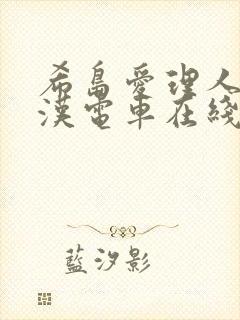 希島愛理人
漢電車在綫
藍汐影